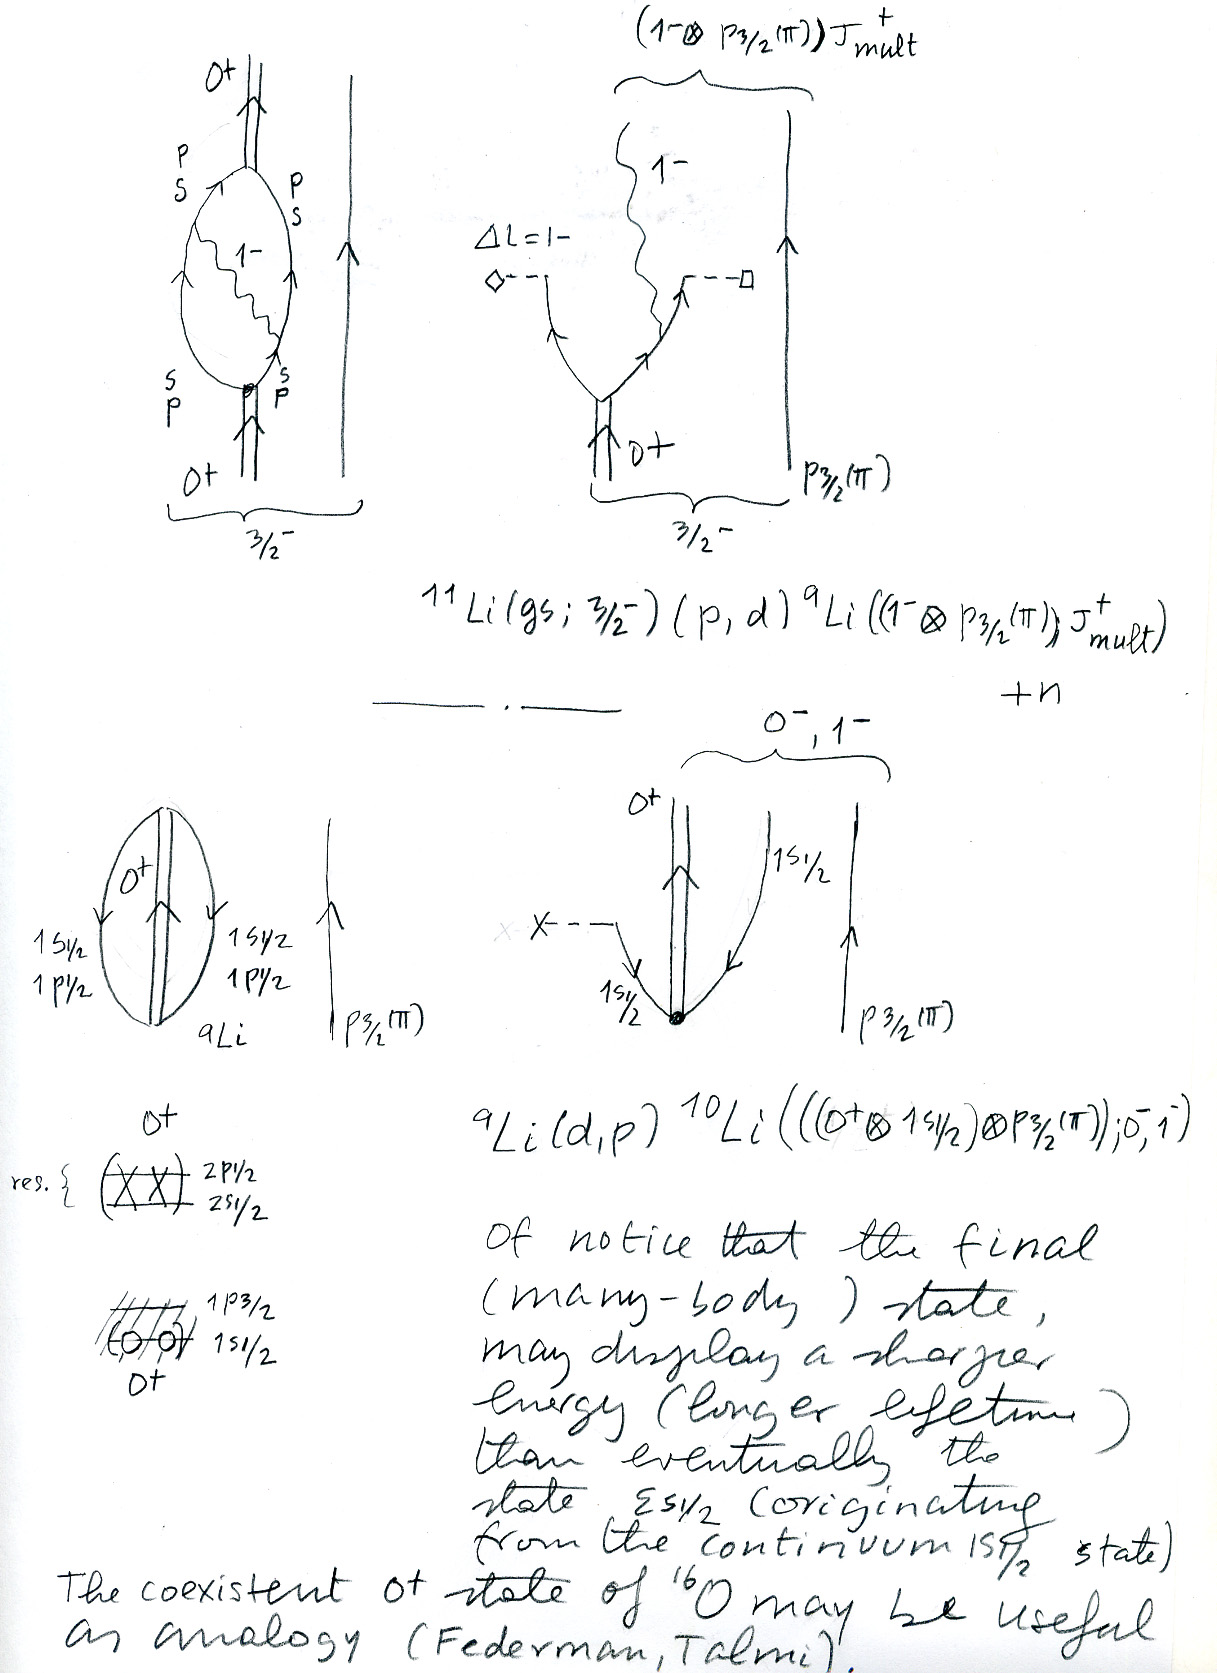 (1-⊗ p3/2(π)) J+mult
0+
P
S
P
S
1-
1-
ΔL=1-
S
P
S
P
0+
0+
p3/2(π)
3/2-
3/2-
11Li(gs; 3/2-) (p,d) 9Li((1-⊗ p3/2(π)); J+mult)
+n
0-, 1-
0+
0+
1s1/2
1s1/2
1p1/2
1s1/2
1p1/2
1s1/2
9Li
p3/2(π)
p3/2(π)
9Li(d,p) 10Li(((0+⊗ 1s1/2)⊗p3/2(π)); 0-, 1-)
0+
res. { (XX) 2p1/2
2s1/2
1p3/2
1s1/2
0+
Of notice that the final
(many-body) state,
may display a sharper
energy (longer lifetime)
than eventually the
state 2s1/2 (originating
from the continuum 1s1/2 state)
The coexistent 0+ state of 16O may be useful
as analogy (Federman, Talmi).